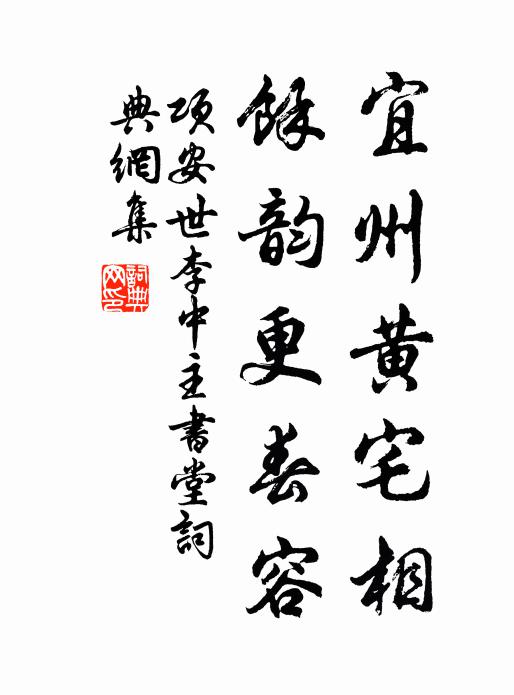 宜州黄宅相
餘韵更舂容
項安世李中主書堂詞
典網集
詞典
网印